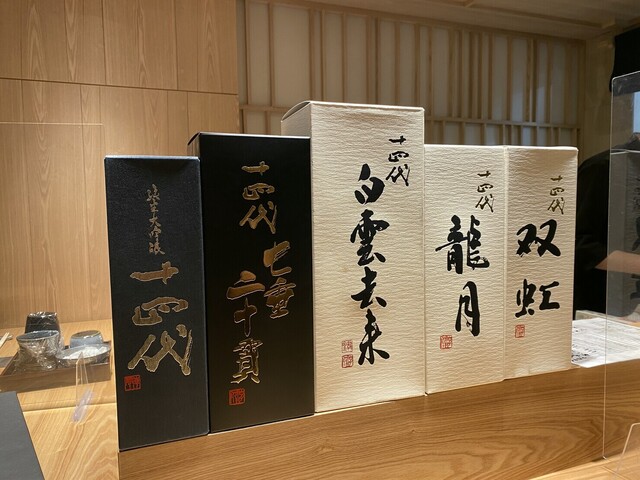 純米大吟醸
十四代
十四代
七垂二十貫
十四代
白雲去来
十四代
龍月
十四代
双虹